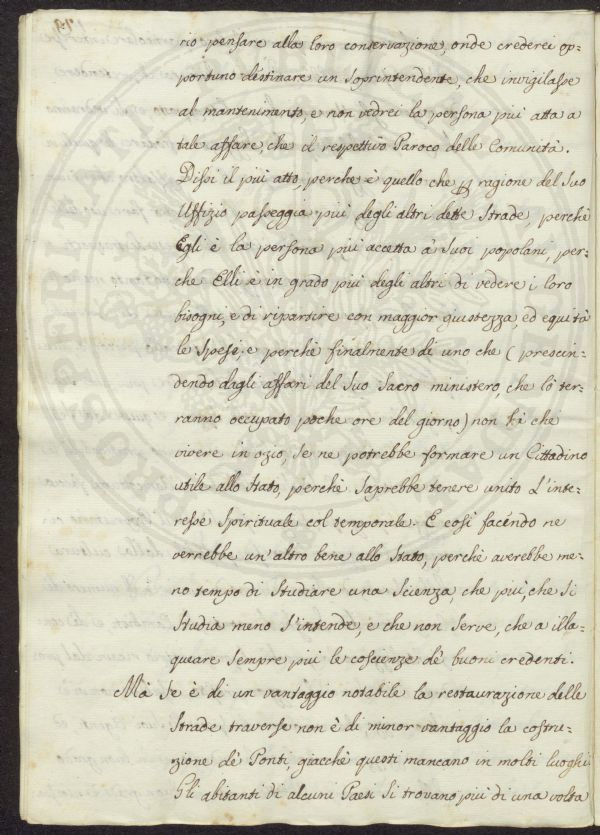 rio pensare alla loro conservazione, onde crederei op=
portuno destinare un soprintendente, che invigilasse
al mantenimento, e non vedrei la persona più atta a
tale affare, che il respettivo Paroco delle Comunità.
Dissi il più atto, perche è quello che p ragione del Suo
Uffizio passeggia più degli altri dette Strade, perchè
Egli è la persona più accetta a' Suoi popolani, per=
che Elli è in grado più degli altri di vedere i loro
bisogni, e di ripartire con maggior giustezza, ed equità
le Spese, e perchè finalmente di uno che (prescin=
dendo dagli affari del Suo Sacro ministero, che lo ter=
ranno occupato poche ore del giorno) non hà che
vivere in ozio, Se ne potrebbe formare un Cittadino
utile allo Stato, perchè Saprebbe tenere unito L'inte=
resse Spirituale col temporale. E così facendo ne
verrebbe un'altro bene allo Stato, perchè averebbe me=
no tempo di Studiare una Scienza, che più, che Si
Studia meno S'intende, e che non Serve, che a illa=
queare Sempre più le coscienze de' buoni credenti.
Mà Se è di un vantaggio notabile la restaurazione delle
Strade traverse non è di minor vantaggio la costru=
zione de' Ponti, giacchè questi mancano in molti luoghi
Gli abitanti di alcuni Paesi Si trovano più di una volta